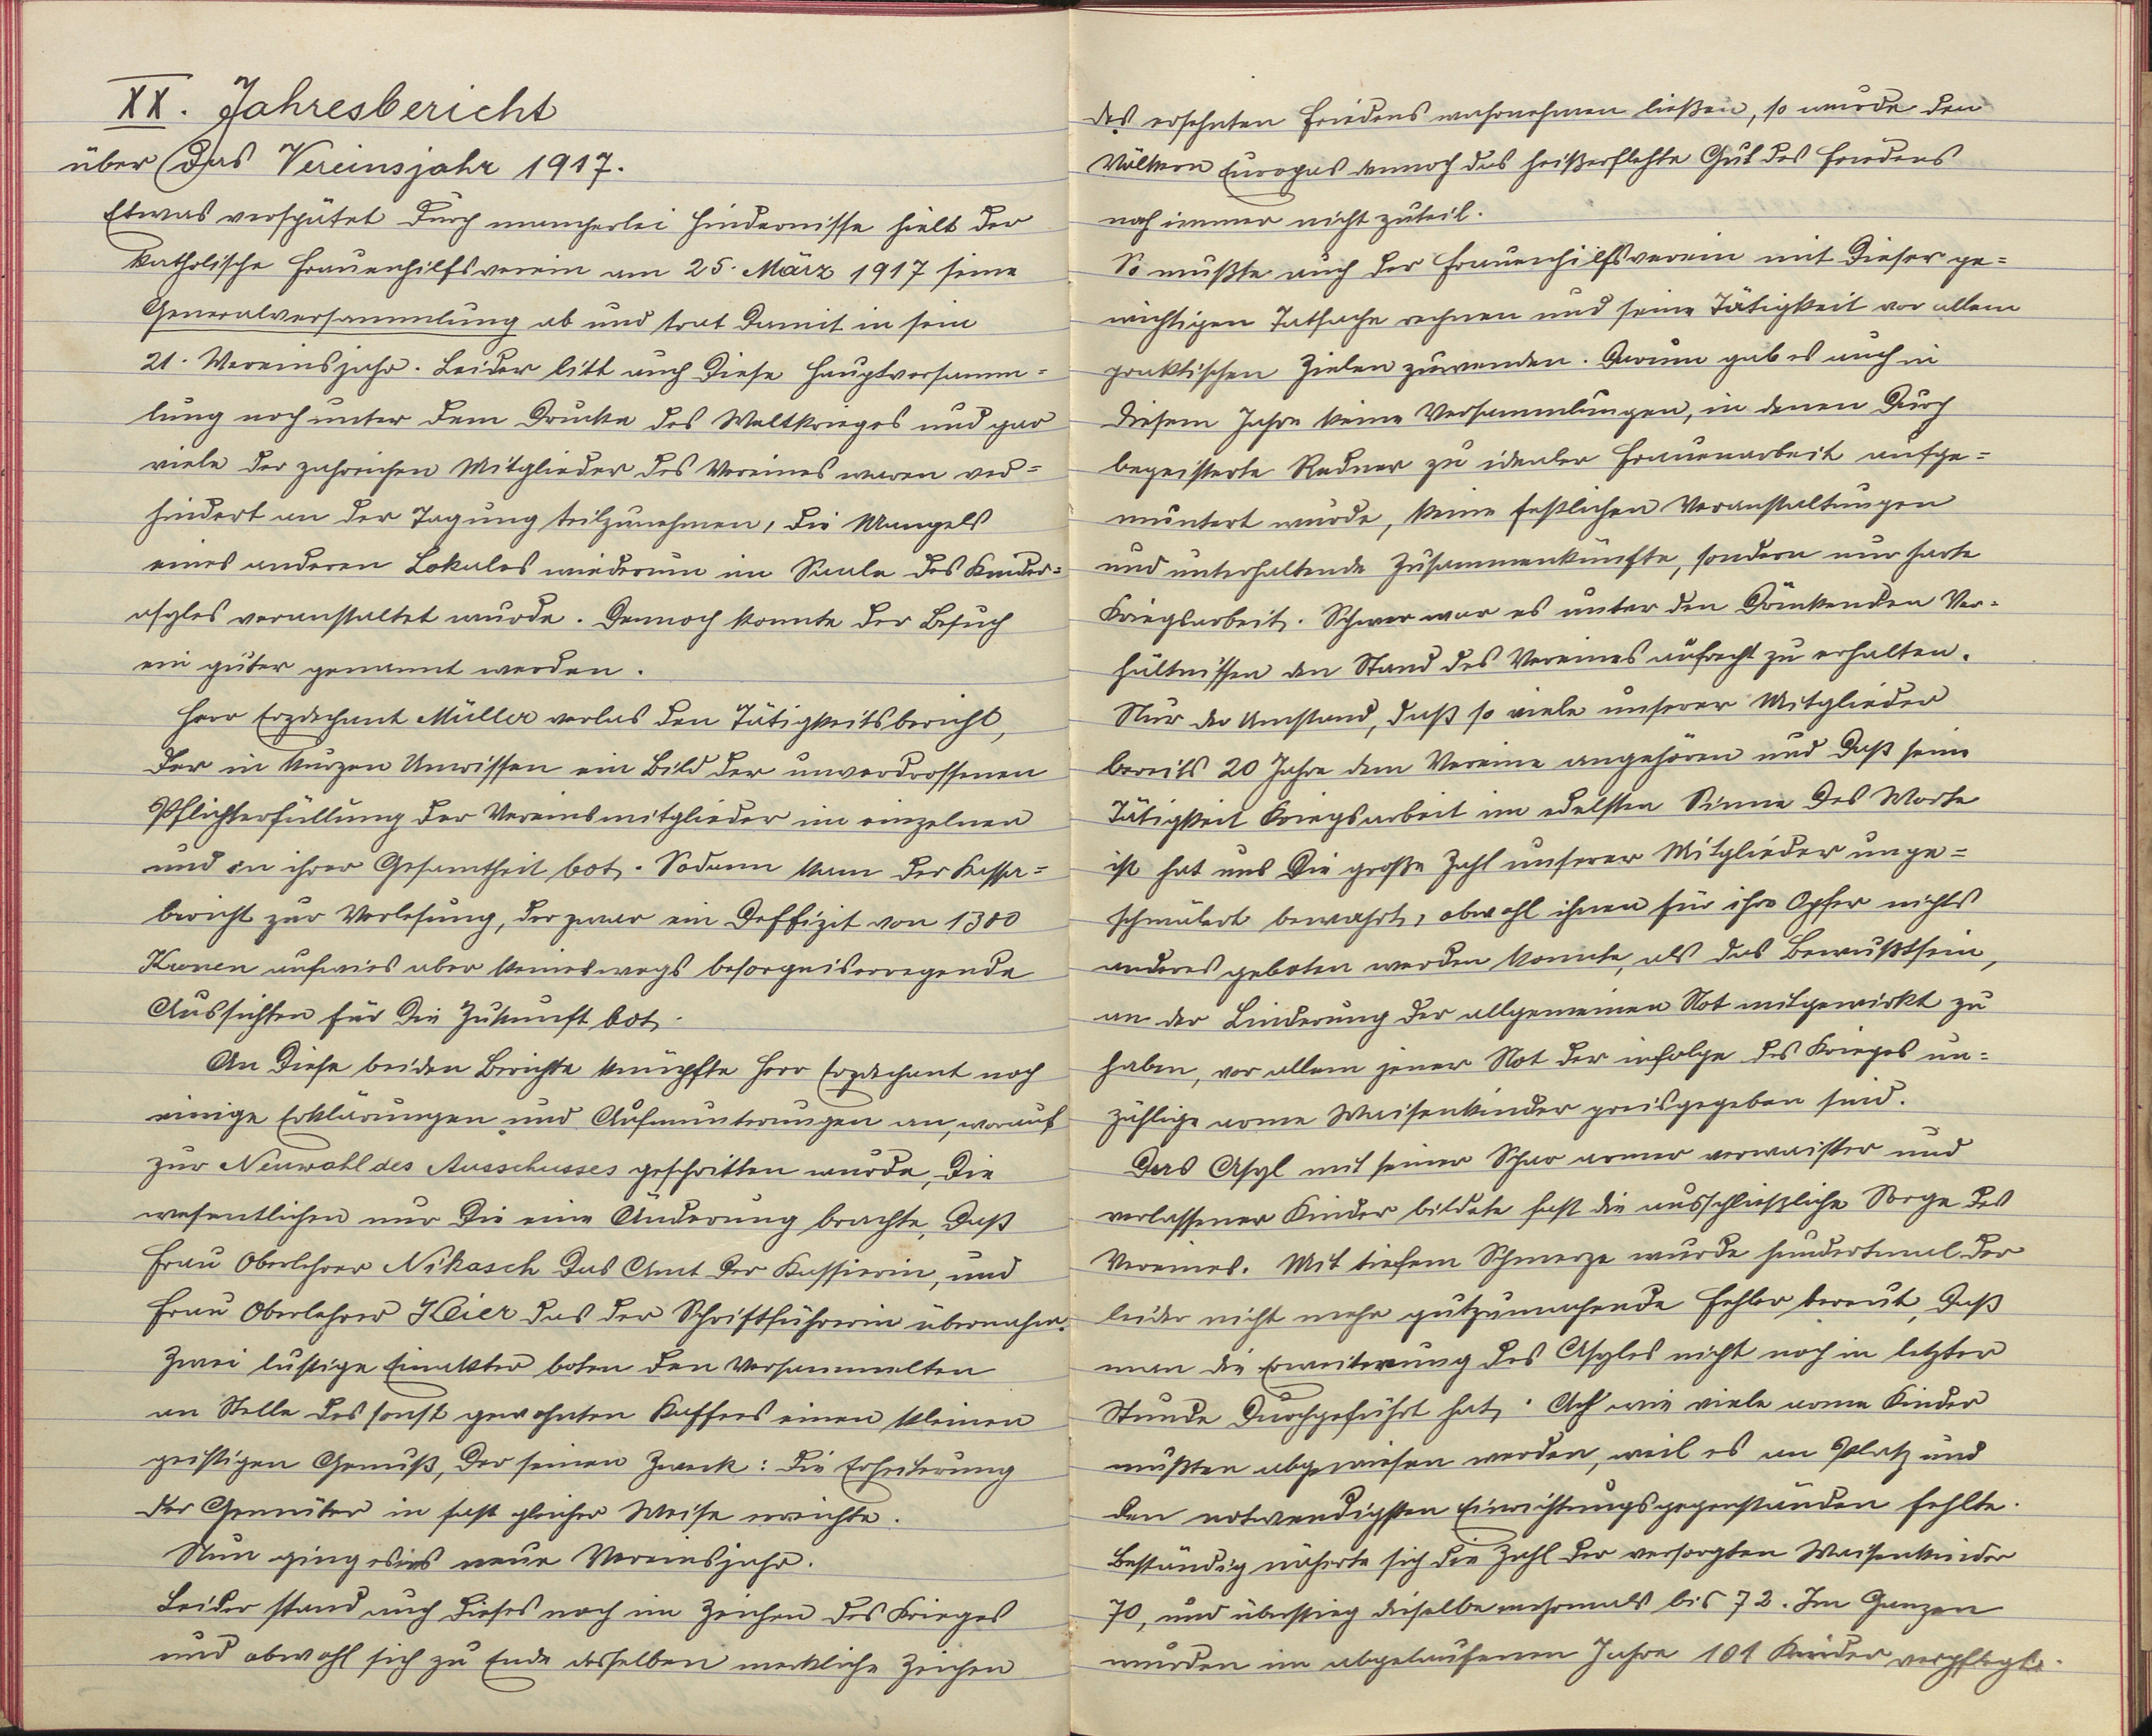 XX. Jahresbericht
über das Vereinsjahr 1917.
Etwas verspätet durch mancherlei Hindernisse hielt der
katholische Frauenhilfsverein am 25. März 1917 seine
Generalversammlung ab und trat damit in sein
21. Vereinsjahr. Leider litt auch diese Hauptversamm=
lung noch unter dem Drucke des Weltkrieges und gar
viele der zahreichen Mitglieder des Vereines waren ver=
hindert an der Tagung teilzunehmen, die Mangels
eines anderen Lokales wiederum im Saale des Kinder=
asyles veranstaltet wurde. Dennoch konnte der Besuch
ein guter genannt werden.
Herr Erzdechant Müller verlas den Tätigkeitsbericht,
der in kurzen Umrissen ein Bild der unverdrossenen
Pflichterfüllung der Vereinsmitglieder im einzelnen
und in ihrer Gesamtheit bot. Sodann kam der Kassa=
bericht zur Verlesung, der zwar ein Deffizit von 1300
Kronen aufwies aber keineswegs besorgniserregende
Aussichten für die Zukunft bot.
An diese beiden Berichte knüpfte Herr Erzdechant noch
einige Erklärungen und Aufmunterungen an, worauf
zur Neuwahl des Ausschusses geschritten wurde, die
wesentlichen nur die eine Änderung brachte, daß
Frau Oberlehrer Nikasch das Amt der Kassierin, und
Frau Oberlehrer Heier das der Schriftführerin übernahm.
Zwei lustige Einakter boten den Versammelten
an Stelle des sonst gewohnten Kaffees einen kleinen
geistigen Genuß, der seinen Zweck: die Erheiterung
der Gemüter in fast gleicher Weise erreichte.
Nun ging es ins neue Vereinsjahr.
Leider stand auch dieses noch im Zeichen des Krieges
und obwohl sich zu Ende desselben merkliche Zeichen
des ersehnten Friedens wahrnehmen ließen, so wurde den
Völkern Europas dennoch das heißerflehte Gut des Friedens
noch immer nicht zuteil.
So mußte auch der Frauenhilfsverein mit dieser ge=
wichtigen Tatsache rechnen und seine Tätigkeit vor allem
praktischen Zielen zuwenden. Darum gab es auch in
diesem Jahre keine Versammlungen, in denen durch
begeisterte Redner zu idealer Frauenarbeit aufge=
muntert wurde, keine festlichen Veranstaltungen
und unterhaltende Zusammenkünfte, sondern nur harte
Kriegsarbeit. Schwer war es unter den drückenden Ver=
hältnissen den Stand des Vereines aufrecht zu erhalten.
Nur der Umstand, daß so viele unserer Mitglieder
bereits 20 Jahre dem Vereine angehören und daß seine
Tätigkeit Kriegsarbeit im edelsten Sinne des Worte
ist hat uns die große Zahl unserer Mitglieder unge=
schmälert bewahrt, obwohl ihnen für ihre Opfer nichts
anderes geboten werden konnte, als das Bewußtsein,
an der Linderung der allgemeinen Not mitgewirkt zu
haben, vor allem jener Not der infolge des Krieges un=
zählige arme Waisenkinder preisgegeben sind.
Das Asyl mit seiner Schar armer verwaister und
verlassener Kinder bildete fast die ausschließliche Sorge des
Vereines. Mit tiefem Schmerze wurde hundertmal der
leider nicht mehr gutzumachende Fehler bereut, daß
man die Erweiterung des Asyles nicht noch in letzter
Stunde durchgeführt hat. Ach wie viele arme Kinder
mußten abgewiesen werden, weil es an Platz und
den notwendigsten Einrichtungsgegenständen fehlte.
Beständig näherte sich die Zahl der versorgten Waisenkinder
70, und überstieg dieselbe mehrmals bis 72. Im Ganzen
wurden im abgelaufenen Jahre 101 Kinder verpflegt.